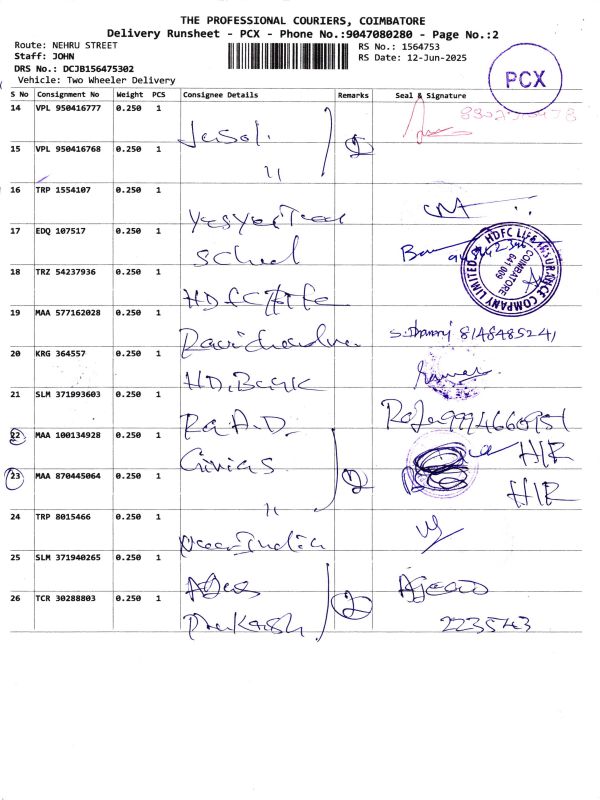 THE PROFESSIONAL COURIERS, COIMBATORE
Delivery Runsheet - PCX - Phone No.:9047080280 - Page No.:2
Route: NEHRU STREET
Staff: JOHN
DRS No.: DCJB156475302
Vehicle: Two Wheeler Delivery
RS No.: 1564753
RS Date: 12-Jun-2025
PCX
S No Consignment No Weight PCS Consignee Details Remarks Seal & Signature
14 VPL 950416777 0.250 1
15 VPL 950416768 0.250 1 " 2
16 TRP 1554107 0.250 1
17 EDQ 107517 0.250 1 School
HDFC LIFE INSURANCE COMPANY LIMITED
COIMBATORE
641 009
18 TRZ 54237936 0.250 1 HDFC Life
19 MAA 577162028 0.250 1 Ravichandran 8148485241
20 KRG 364557 0.250 1 HD.Bank
21 SLM 371993603 0.250 1 R.A.D. 9994660951
22 MAA 100134928 0.250 1 Civias H/R
23 MAA 870445064 0.250 1 " 2 H/R
24 TRP 8015466 0.250 1 India
25 SLM 371940265 0.250 1
26 TCR 30288803 0.250 1 Prakash 2 2235743